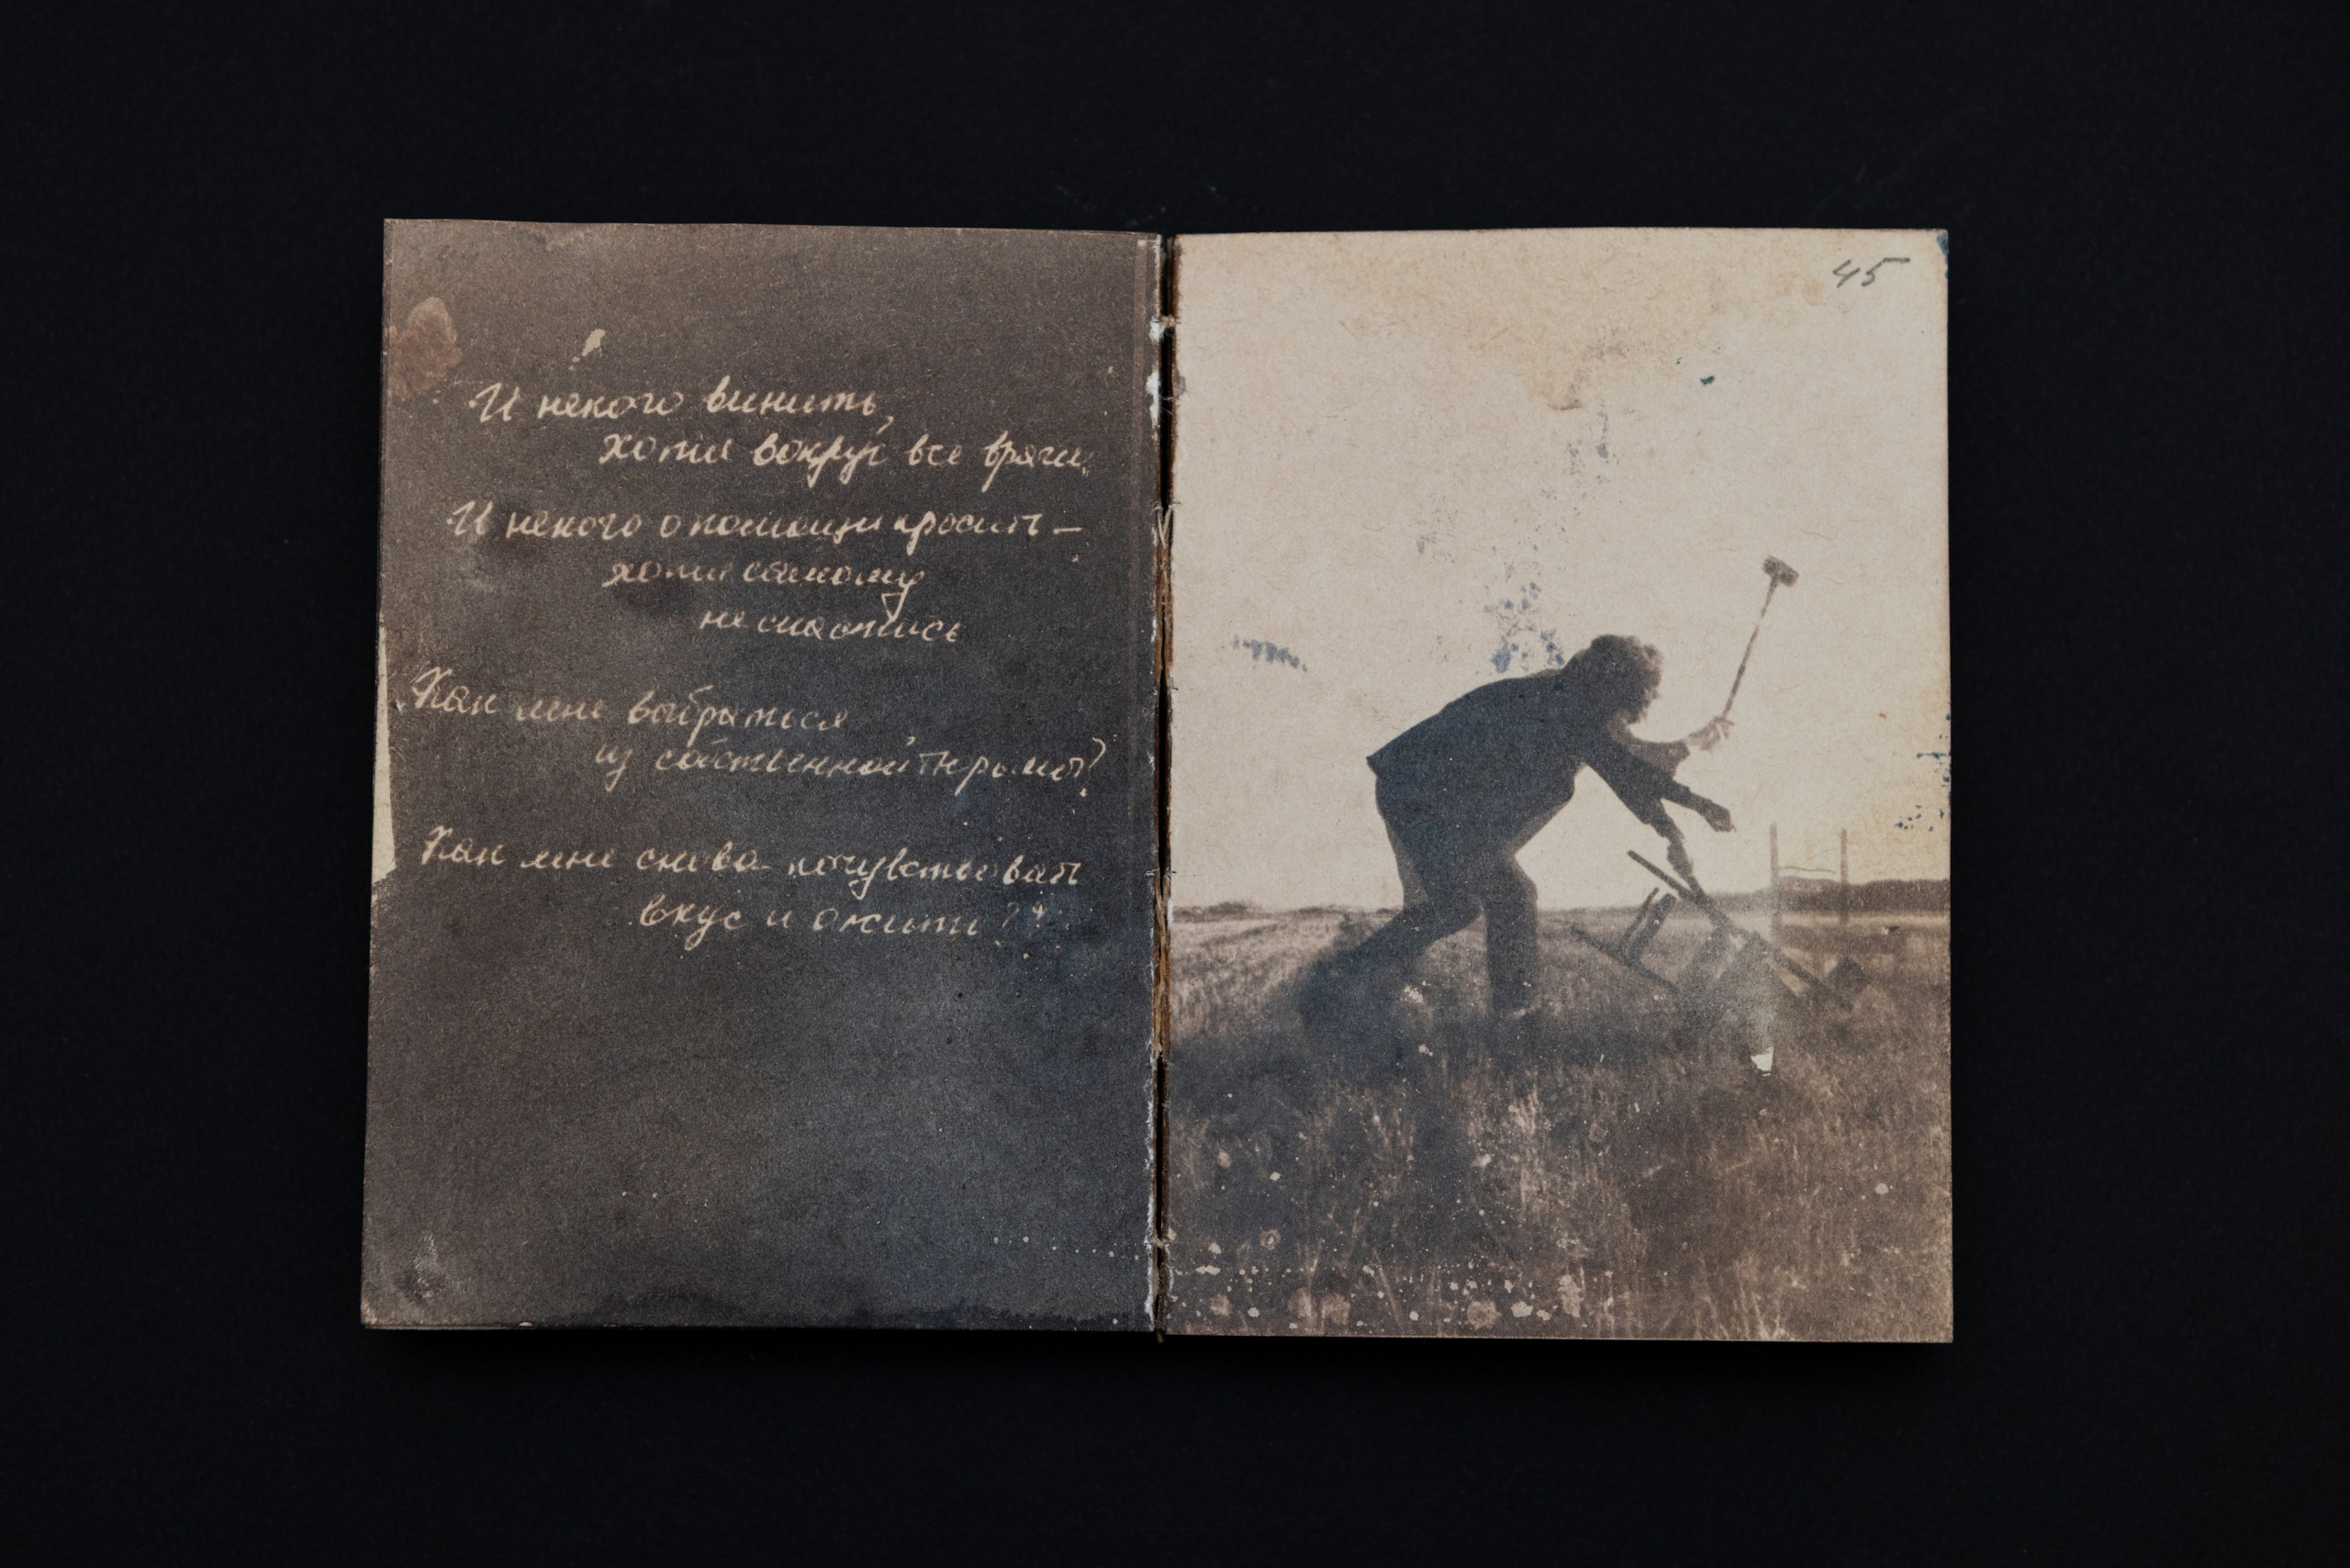 И некого винить,
хотя вокруг все враги.
И некого о помощи просить —
хотя самому
не спастись
Как мне выбраться
из собственной тюрьмы?
Как мне снова почувствовать
вкус и ожить??
45